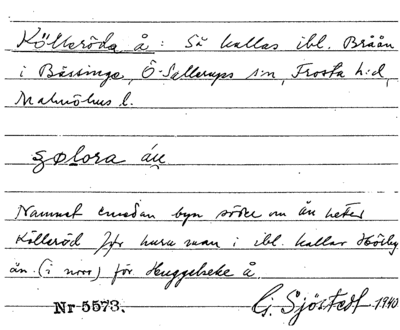 Kölleröda å : Så kallas ibl. Bråån
i Bässinge, Ö. Sallerups s:n, Frosta h:d,
Malmöhus l.
Namnet emedan byn söder om ån heter
Kölleröd Jfr huru man i ibl. kallar Hörby
ån (i norr) för Huggeheke å
G. Sjöstedt 1940
Nr 5573.